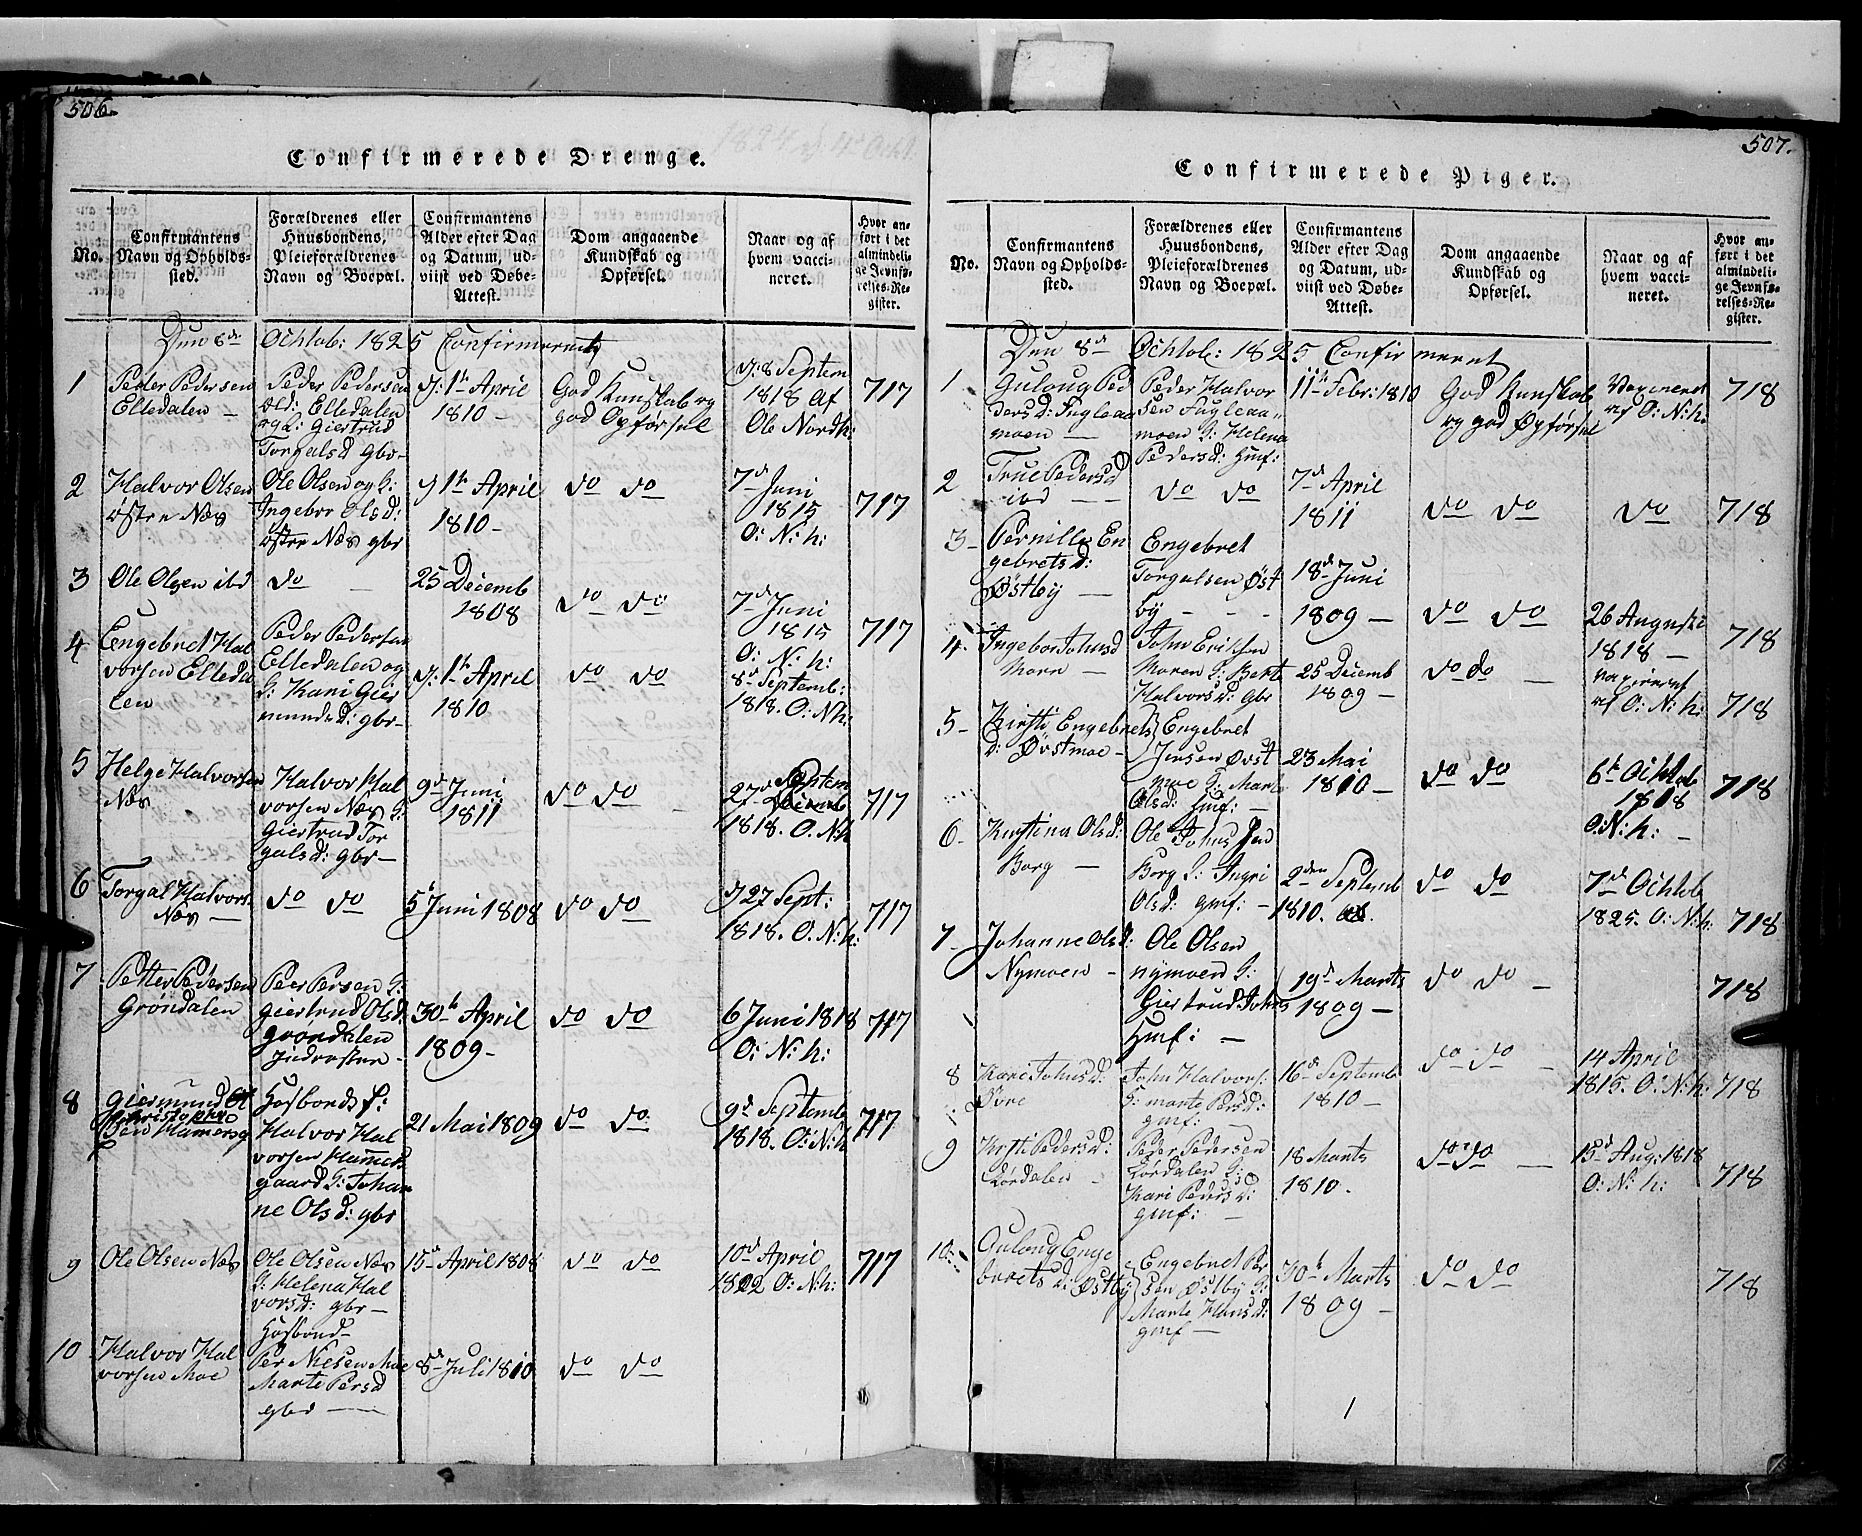 506.
Confirmerede Drenge.
No.
Confirmantens Navn og Opholds-sted.
Forældrenes eller Huusbondens, Pleieforældrenes Navn og Boepæl.
Confirmantens Alder efter Dag og Datum, ud-viist ved Døbe-Attest.
Dom angaaende Kundskab og Opførsel.
Naar og af hvem vacci-neret.
Hvor an-ført i det almindeli-ge Jevnfø-relses-Re-gister.
Den 8de Ochtob: 1825 Confirmeret
1 Peder Pedersen Elledalen —
Peder Pedersen Elledalen og G: Giertrud Torgalsd gbr-
1th April 1810 -
God Kunskab og god Opførsel
8 Septem 1818 Af Ole Nordh:
717
2 Halvor Olsen østre Næs
Ole Olsen og G: Ingebor Olsd: østre Næs gbr
1th April 1810 -
do do
7d Juni 1815 O: N: h:
717
3 Ole Olsen ibd
do
25 Decemb 1808
do do
7d Juni 1815 O: N: h:
717
4 Engebret Halvorsen Elledalen
Peder Pedersen Elledalen og G: Kari Giermunds d: gbr-
1th April 1810
do do
8d Septemb: 1818. O: N h:
5 Helge Halvorsen Næs
Halvor Halvorsen Næs G: Giertrud Torgalsd: gbr —
9d Juni 1811
do do
27d Septem 1818. O: N: h
717
6 Torgal Halvors Næs —
do do
5t Juni 1808
do do
27 Sept: 1818. O. N: h:
717
7 Petter Pedersen Gröndalen
Peer Persen G: Giertrud Olsd: grondalen
30th April 1809-
do do
6 Juni 1818 O: N: h:
717
8 Giermund Christophersen Hamersg
Hosbonds f: Halvor Halvorsen Hammersgaard G: Johanne Olsd: gbr
21 Mai 1809
do do
9d Septemb 1818. O: N: h
717
9 Ole Olsen Næs
Ole Olsen Næs G: Helena Halvorsd: gbr —
15d April 1808
do do
10d April 1822 O: N. h:
717
10 Halvor Halvorsen Moe
Hosbond Per Nielsen Moe Marte Persd
8d Juli 1810
do do
507.
Confirmerede Piger.
No.
Confirmantens Navn og Opholds-sted.
Forældrenes eller Huusbondens, Pleieforældrenes Navn og Boepæl.
Confirmantens Alder efter Dag og Datum, ud-viist ved Døbe-Attest.
Dom angaaende Kundskab og Opførsel.
Naar og af hvem vacci-neret.
Hvor an-ført i det almindeli-ge Jevnfø-relses-Re-gister.
Den 8d Ochtob: 1825 Confirmeret
1 Guloug Pedersd: Fugleaamoen —
Peder Halvorsen Fugleaamoen G: Helena Pedersd: Hmf:
11th Febr: 1810
God Kunskab og god Opførsel
Vaxineret af O: N: h:
718
2 True Pedersd ibd —
do do
7d April 1811
do do
do
718
3- Pernille Engebretsd: Østbÿ —
Engebret Torgalsen Østbÿ - - -
18d Juni 1809 —
do do
26 Augusti 1818 —
718
4. Ingebor Johnsd Moren
John Eriksen Moren G: Berte Halvorsd: gbr
25 Decemb 1809 -
do do —
vaxineret af O: N: h:
718
5- Kirsti Engebretsd: Øvstmoe -
Engebret Jensen Øvstmoe G: Marte Olsd: Hmf: -
23 Mai 1810 —
do do
6t Ochtob 1818 O: N: h: -
718
6. Kirstina Olsd: Borg —
Ole Johns Borg G: Ingri Olsd: gmf: -
2den Septemb 1810.
do do
7d Ochtob 1825. O: N: h:
718
7- Johanne Olsd: Nymoen -
Ole Olsen nymoen G: Giertrud Johns Hmf: —
19d Marts 1809 —
do do -
718
8 Kari Johnsd: Øvre
John Halvors: G: marte Persd: gmf: —
16d Septemb 1810 -
do do -
14 April 1815. O: N: h:
718
9 Kirsti Pedersd: Lørdalen -
Peder Pedersen Lørdalen G: Kari Pedersd: gmf: —
18 Marts 1810.
do do —
15d Aug: 1818 O: N: h:
718
10. Guloug Engebrets d: Østby
Engebret Persen Østby G: Marte Hansd: gmf —
30th Marts 1809 —
do do
718